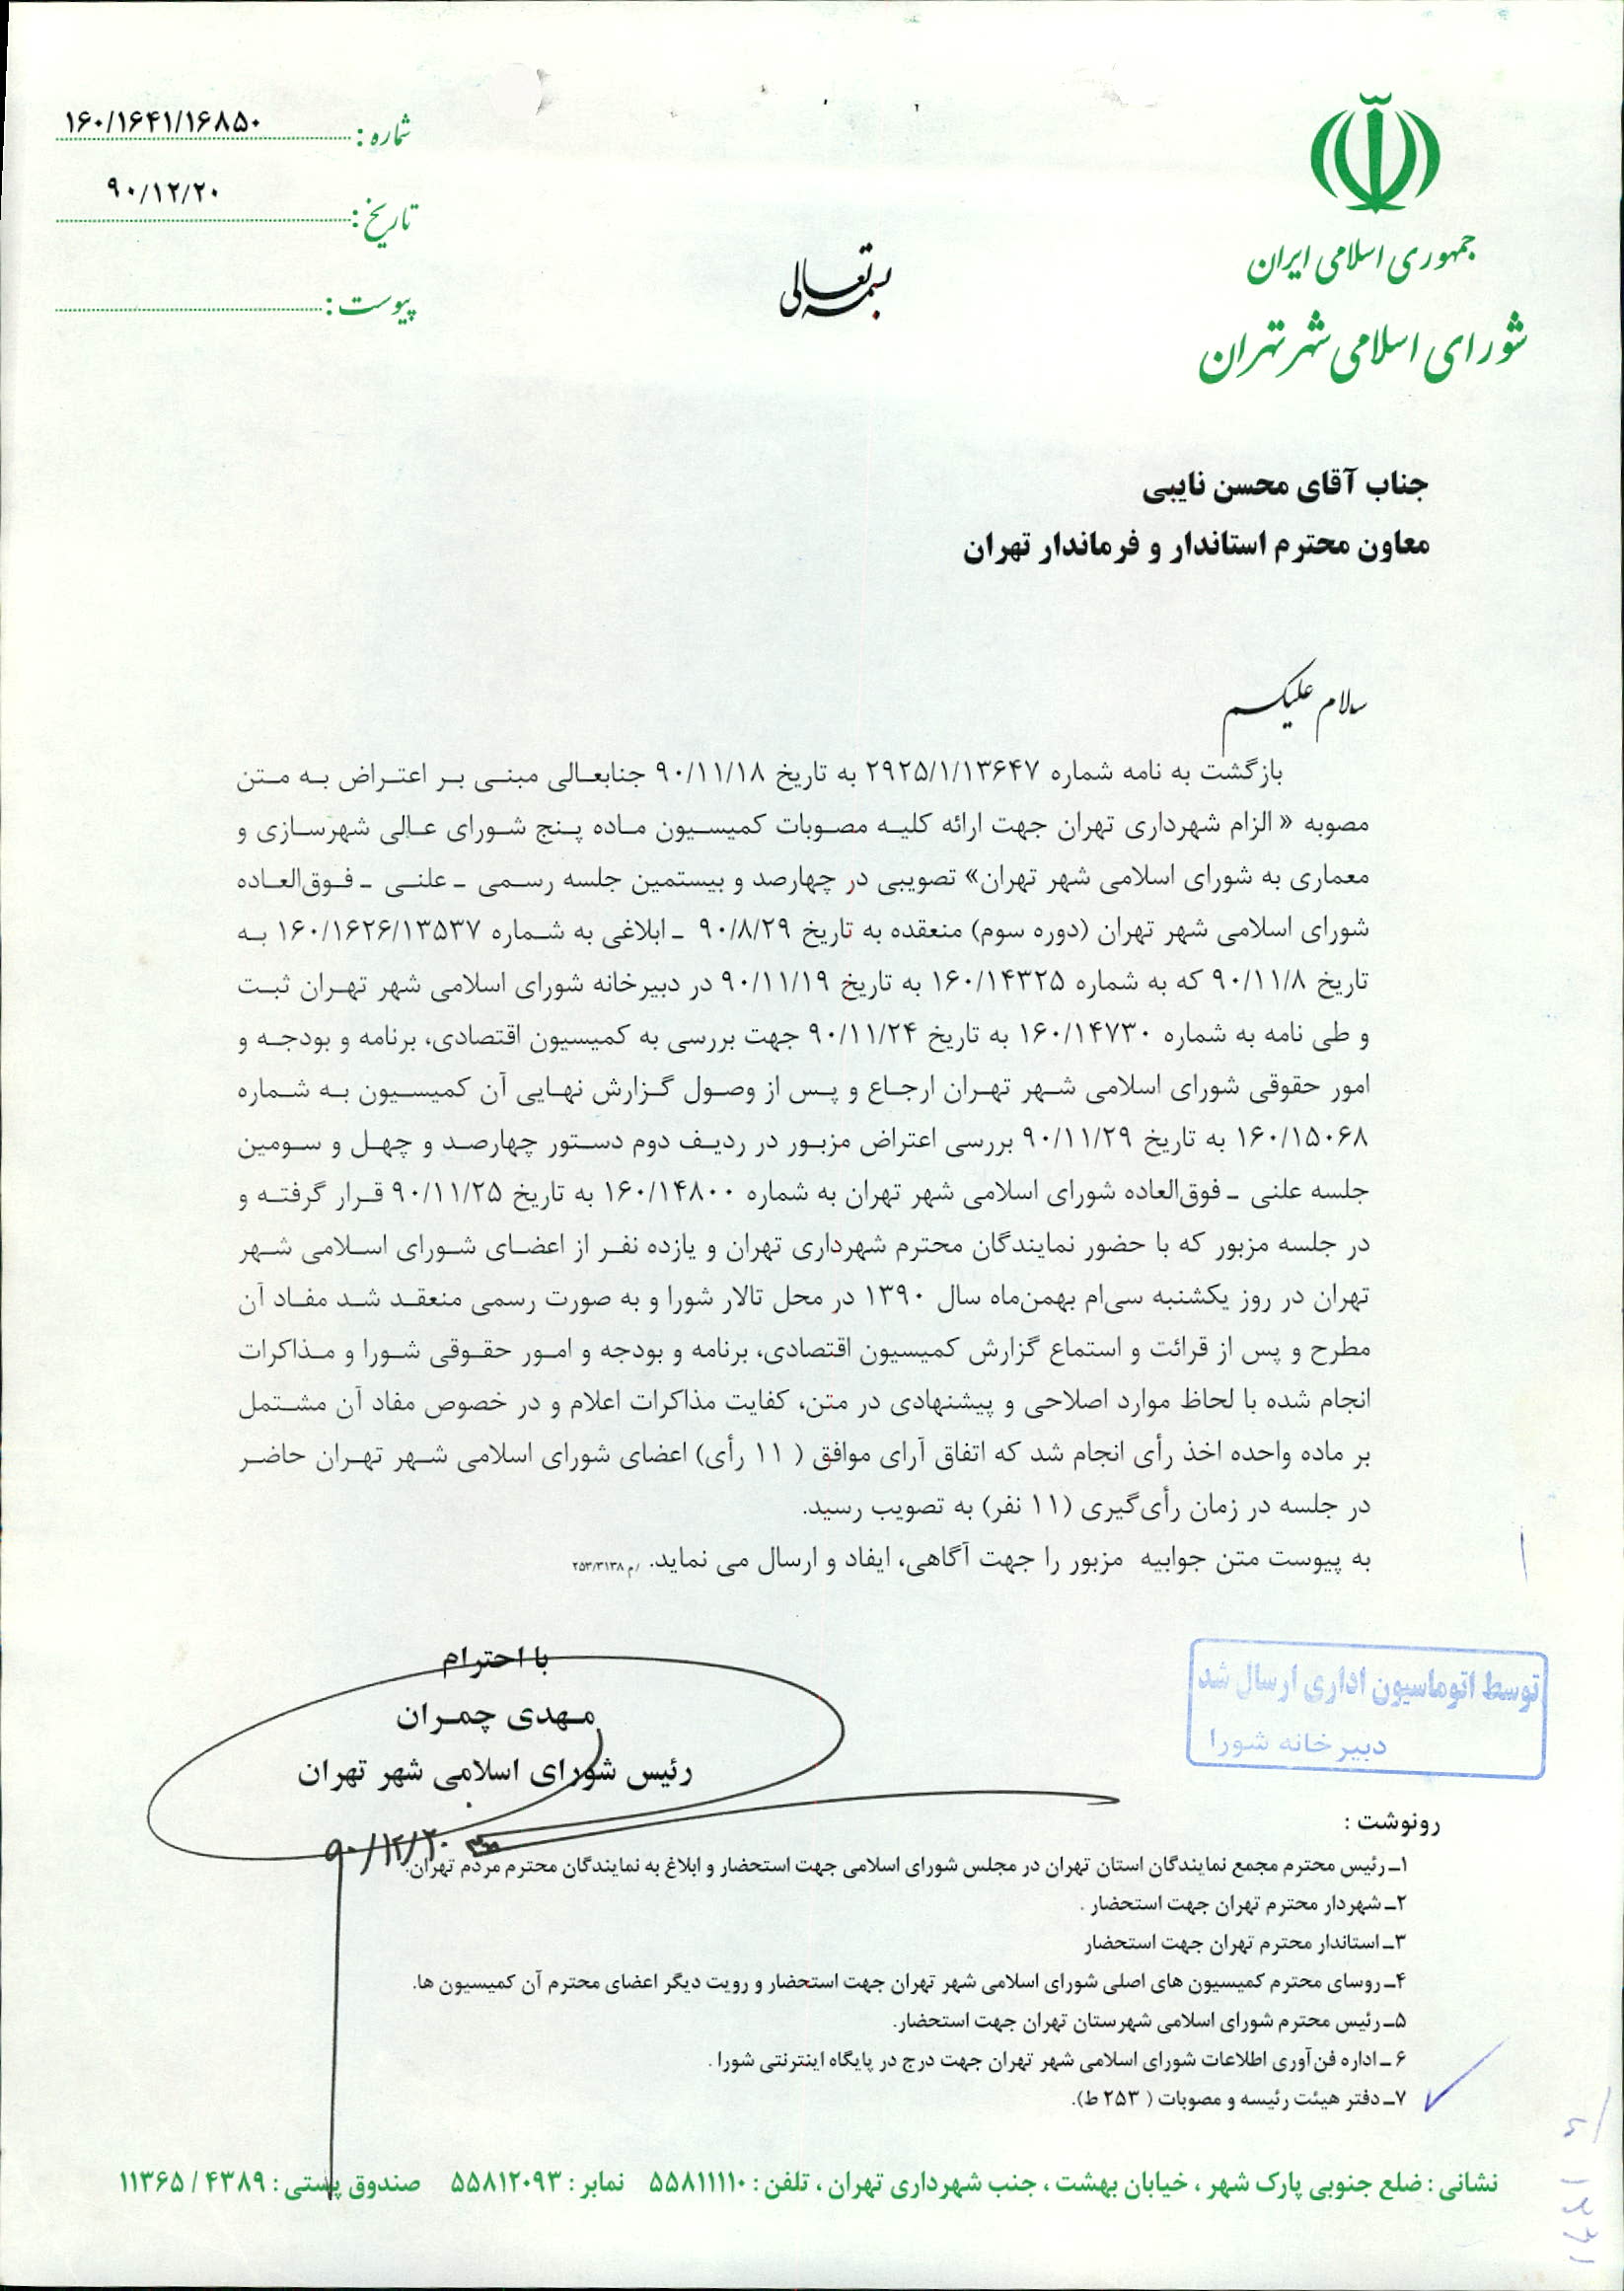 جمهوری اسلامی ایران
شورای اسلامی شهر تهران
بسمه تعالی
شماره : ۱۶۰/۱۶۴۱/۱۶۸۵۰
تاریخ : ۹۰/۱۲/۲۰
پیوست :
جناب آقای محسن نایبی
معاون محترم استاندار و فرماندار تهران
سلام علیکم
بازگشت به نامه شماره ۲۹۲۵/۱/۱۳۶۴۷ به تاریخ ۹۰/۱۱/۱۸ جنابعالی مبنی بر اعتراض به متن
مصوبه « الزام شهرداری تهران جهت ارائه کلیه مصوبات کمیسیون ماده پنج شورای عالی شهرسازی و
معماری به شورای اسلامی شهر تهران» تصویبی در چهارصد و بیستمین جلسه رسمی ـ علنی ـ فوق‌العاده
شورای اسلامی شهر تهران (دوره سوم) منعقده به تاریخ ۹۰/۸/۲۹ ـ ابلاغی به شماره ۱۶۰/۱۶۲۶/۱۳۵۳۷ به
تاریخ ۹۰/۱۱/۸ که به شماره ۱۶۰/۱۴۳۲۵ به تاریخ ۹۰/۱۱/۱۹ در دبیرخانه شورای اسلامی شهر تهران ثبت
و طی نامه به شماره ۱۶۰/۱۴۷۳۰ به تاریخ ۹۰/۱۱/۲۴ جهت بررسی به کمیسیون اقتصادی، برنامه و بودجه و
امور حقوقی شورای اسلامی شهر تهران ارجاع و پس از وصول گزارش نهایی آن کمیسیون به شماره
۱۶۰/۱۵۰۶۸ به تاریخ ۹۰/۱۱/۲۹ بررسی اعتراض مزبور در ردیف دوم دستور چهارصد و چهل و سومین
جلسه علنی ـ فوق‌العاده شورای اسلامی شهر تهران به شماره ۱۶۰/۱۴۸۰۰ به تاریخ ۹۰/۱۱/۲۵ قرار گرفته و
در جلسه مزبور که با حضور نمایندگان محترم شهرداری تهران و یازده نفر از اعضای شورای اسلامی شهر
تهران در روز یکشنبه سی‌ام بهمن‌ماه سال ۱۳۹۰ در محل تالار شورا و به صورت رسمی منعقد شد مفاد آن
مطرح و پس از قرائت و استماع گزارش کمیسیون اقتصادی، برنامه و بودجه و امور حقوقی شورا و مذاکرات
انجام شده با لحاظ موارد اصلاحی و پیشنهادی در متن، کفایت مذاکرات اعلام و در خصوص مفاد آن مشتمل
بر ماده واحده اخذ رأی انجام شد که اتفاق آرای موافق ( ۱۱ رأی) اعضای شورای اسلامی شهر تهران حاضر
در جلسه در زمان رأی‌گیری (۱۱ نفر) به تصویب رسید.
به پیوست متن جوابیه مزبور را جهت آگاهی، ایفاد و ارسال می نماید. /م ۲۵۳/۳۱۳۸
با احترام
مهدی چمران
رئیس شورای اسلامی شهر تهران
۹۰/۱۲/۲۰
توسط اتوماسیون اداری ارسال شد
دبیرخانه شورا
رونوشت :
۱ـ رئیس محترم مجمع نمایندگان استان تهران در مجلس شورای اسلامی جهت استحضار و ابلاغ به نمایندگان محترم مردم تهران.
۲ـ شهردار محترم تهران جهت استحضار .
۳ـ استاندار محترم تهران جهت استحضار
۴ـ روسای محترم کمیسیون های اصلی شورای اسلامی شهر تهران جهت استحضار و رویت دیگر اعضای محترم آن کمیسیون ها.
۵ـ رئیس محترم شورای اسلامی شهرستان تهران جهت استحضار.
۶ ـ اداره فن‌آوری اطلاعات شورای اسلامی شهر تهران جهت درج در پایگاه اینترنتی شورا .
۷ـ دفتر هیئت رئیسه و مصوبات ( ۲۵۳ ط).
نشانی : ضلع جنوبی پارک شهر ، خیابان بهشت ، جنب شهرداری تهران ، تلفن : ۵۵۸۱۱۱۱۰ نمابر : ۵۵۸۱۲۰۹۳ صندوق پستی : ۴۳۸۹ / ۱۱۳۶۵